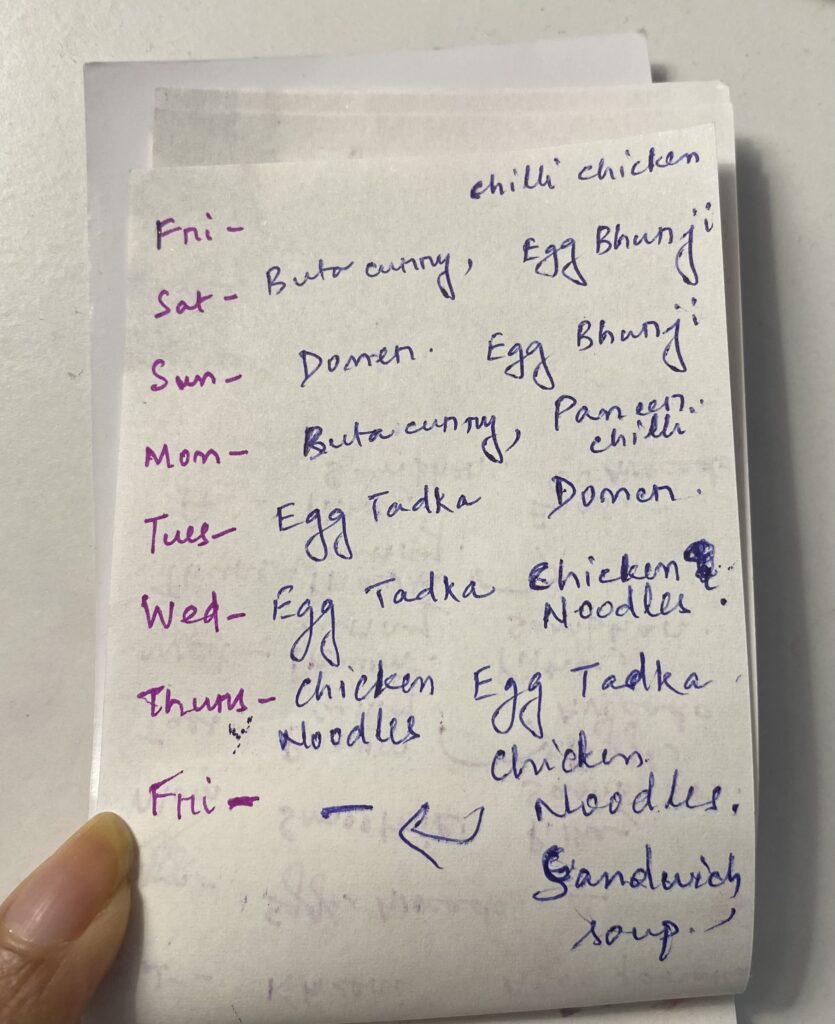 chilli chicken
Fri -
Sat - Buta curry, Egg Bhurji
Sun - Domer. Egg Bhurji
Mon - Buta curry, Paneer.
chilli
Tues - Egg Tadka Domer.
Wed - Egg Tadka Chicken
Noodles.
Thurs - Chicken Egg Tadka.
Noodles
Chicken
Fri - - Noodles.
Sandwich
soup.